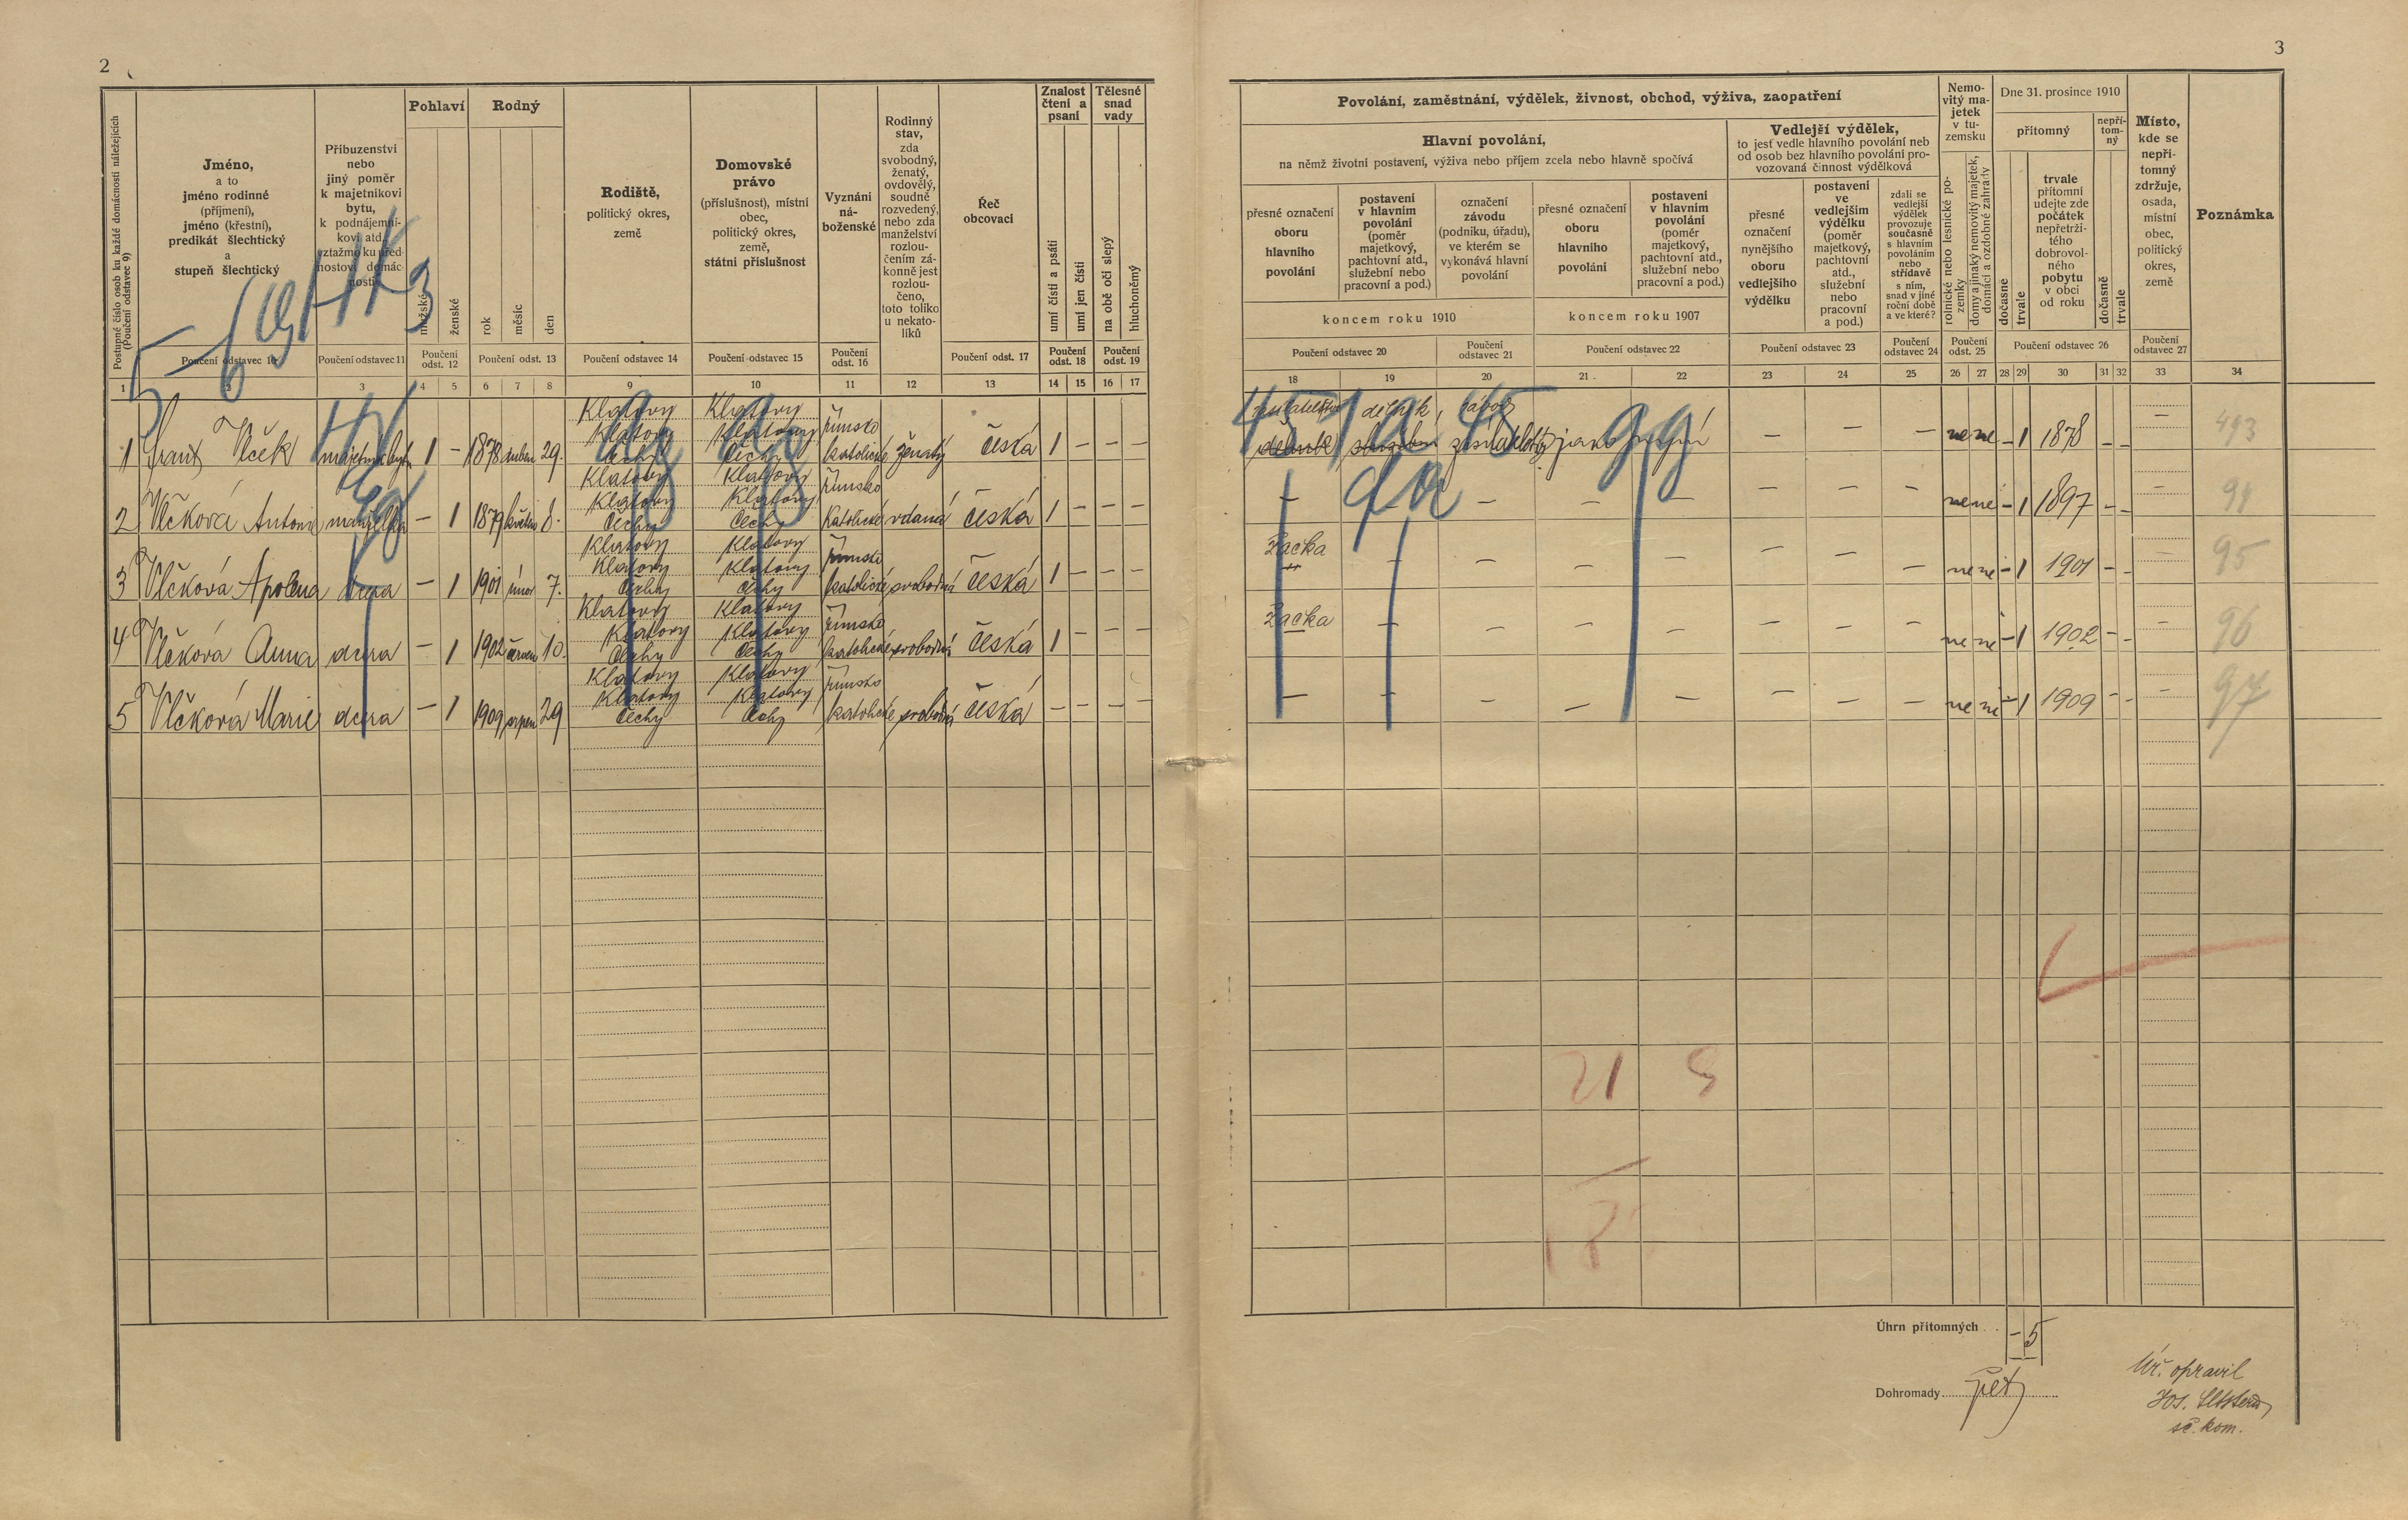 2
3
Postupné číslo osob ku každé domácnosti náležejících
(Poučení odstavec 9)
Jméno,
a to
jméno rodinné
(příjmení),
jméno (křestní),
predikát šlechtický
a
stupeň šlechtický
Příbuzenství
nebo
jiný poměr
k majetníkovi
bytu,
k podnájemní-
kovi atd.
vztažmo ku před-
nostovi domác-
nosti
Pohlaví
mužské
ženské
Rodný
rok
měsíc
den
Rodiště,
politický okres,
země
Domovské
právo
(příslušnost), místní
obec,
politický okres,
země,
státní příslušnost
Vyznání
ná-
boženské
Rodinný
stav,
zda
svobodný,
ženatý,
ovdovělý,
soudně
rozvedený,
nebo zda
manželství
rozlou-
čením zá-
konně jest
rozlou-
čeno,
toto toliko
u nekato-
líků
Řeč
obcovací
Znalost
čtení a
psaní
umí čísti a psáti
umí jen čísti
Tělesné
snad
vady
na obě oči slepý
hluchoněmý
Poučení odstavec 10
Poučení odstavec 11
Poučení
odst. 12
Poučení odst. 13
Poučení odstavec 14
Poučení odstavec 15
Poučení
odst. 16
Poučení odst. 17
Poučení
odst. 18
Poučení
odst. 19
1 2 3 4 5 6 7 8 9 10 11 12 13 14 15 16 17
Povolání, zaměstnání, výdělek, živnost, obchod, výživa, zaopatření
Hlavní povolání,
na němž životní postavení, výživa nebo příjem zcela nebo hlavně spočívá
přesné označení
oboru
hlavního
povolání
postavení
v hlavním
povolání
(poměr
majetkový,
pachtovní atd.,
služební nebo
pracovní a pod.)
označení
závodu
(podniku, úřadu),
ve kterém se
vykonává hlavní
povolání
koncem roku 1910
přesné označení
oboru
hlavního
povolání
postavení
v hlavním
povolání
(poměr
majetkový,
pachtovní atd.,
služební nebo
pracovní a pod.)
koncem roku 1907
Vedlejší výdělek,
to jesť vedle hlavního povolání neb
od osob bez hlavního povolání pro-
vozovaná činnost výdělková
přesné
označení
nynějšího
oboru
vedlejšího
výdělku
postavení
ve
vedlejším
výdělku
(poměr
majetkový,
pachtovní
atd.,
služební
nebo
pracovní
a pod.)
zdali se
vedlejší
výdělek
provozuje
současně
s hlavním
povoláním
nebo
střídavě
s ním,
snad v jiné
roční době
a ve které?
Nemo-
vitý ma-
jetek
v tu-
zemsku
rolnické nebo lesnické po-
zemky
domy a jinaký nemovitý majetek,
domácí a ozdobné zahrady
Dne 31. prosince 1910
přítomný
dočasně
trvale
trvale
přítomní
udejte zde
počátek
nepřetrži-
tého
dobrovol-
ného
pobytu
v obci
od roku
nepří-
tom-
ný
dočasně
trvale
Místo,
kde se
nepří-
tomný
zdržuje,
osada,
místní
obec,
politický
okres,
země
Poznámka
Poučení odstavec 20
Poučení
odstavec 21
Poučení odstavec 22
Poučení odstavec 23
Poučení
odstavec 24
Poučení
odst. 25
Poučení odstavec 26
Poučení
odstavec 27
18 19 20 21 22 23 24 25 26 27 28 29 30 31 32 33 34
Klatovy Klatovy římsko
Klatovy Klatovy
1 Frant. Vlček majetník bytu 1 – 1878 duben 29. Čechy Čechy katolické ženatý česká 1 – – –
dělník závod
– – – ne ne – 1 1878 – – – 493
Klatovy Klatovy římsko
Klatovy Klatovy
2 Vlčková Antonie manželka – 1 1879 květen 8. Čechy Čechy katolické vdaná česká 1 – – –
– – – – – – – ne ne – 1 1897 – – – 94
Klatovy Klatovy římsko
Klatovy Klatovy
3 Vlčková Apolena dcera – 1 1901 únor 7. Čechy Čechy katolické svobodná česká 1 – – –
Žačka – – – – – – ne ne – 1 1901 – – – 95
Klatovy Klatovy římsko
Klatovy Klatovy
4 Vlčková Anna dcera – 1 1902 červen 10. Čechy Čechy katolické svobodná česká 1 – – –
Žačka – – – – – – – ne ne – 1 1902 – – – 96
Klatovy Klatovy římsko
Klatovy Klatovy
5 Vlčková Marie dcera – 1 1909 srpen 29 Čechy Čechy katolické svobodná česká – – – –
– – – – – – – – ne ne – 1 1909 – – – 97
21
Úhrn přítomných – 5
Dohromady pět
Úř. opravil
Jos.
sč. kom.